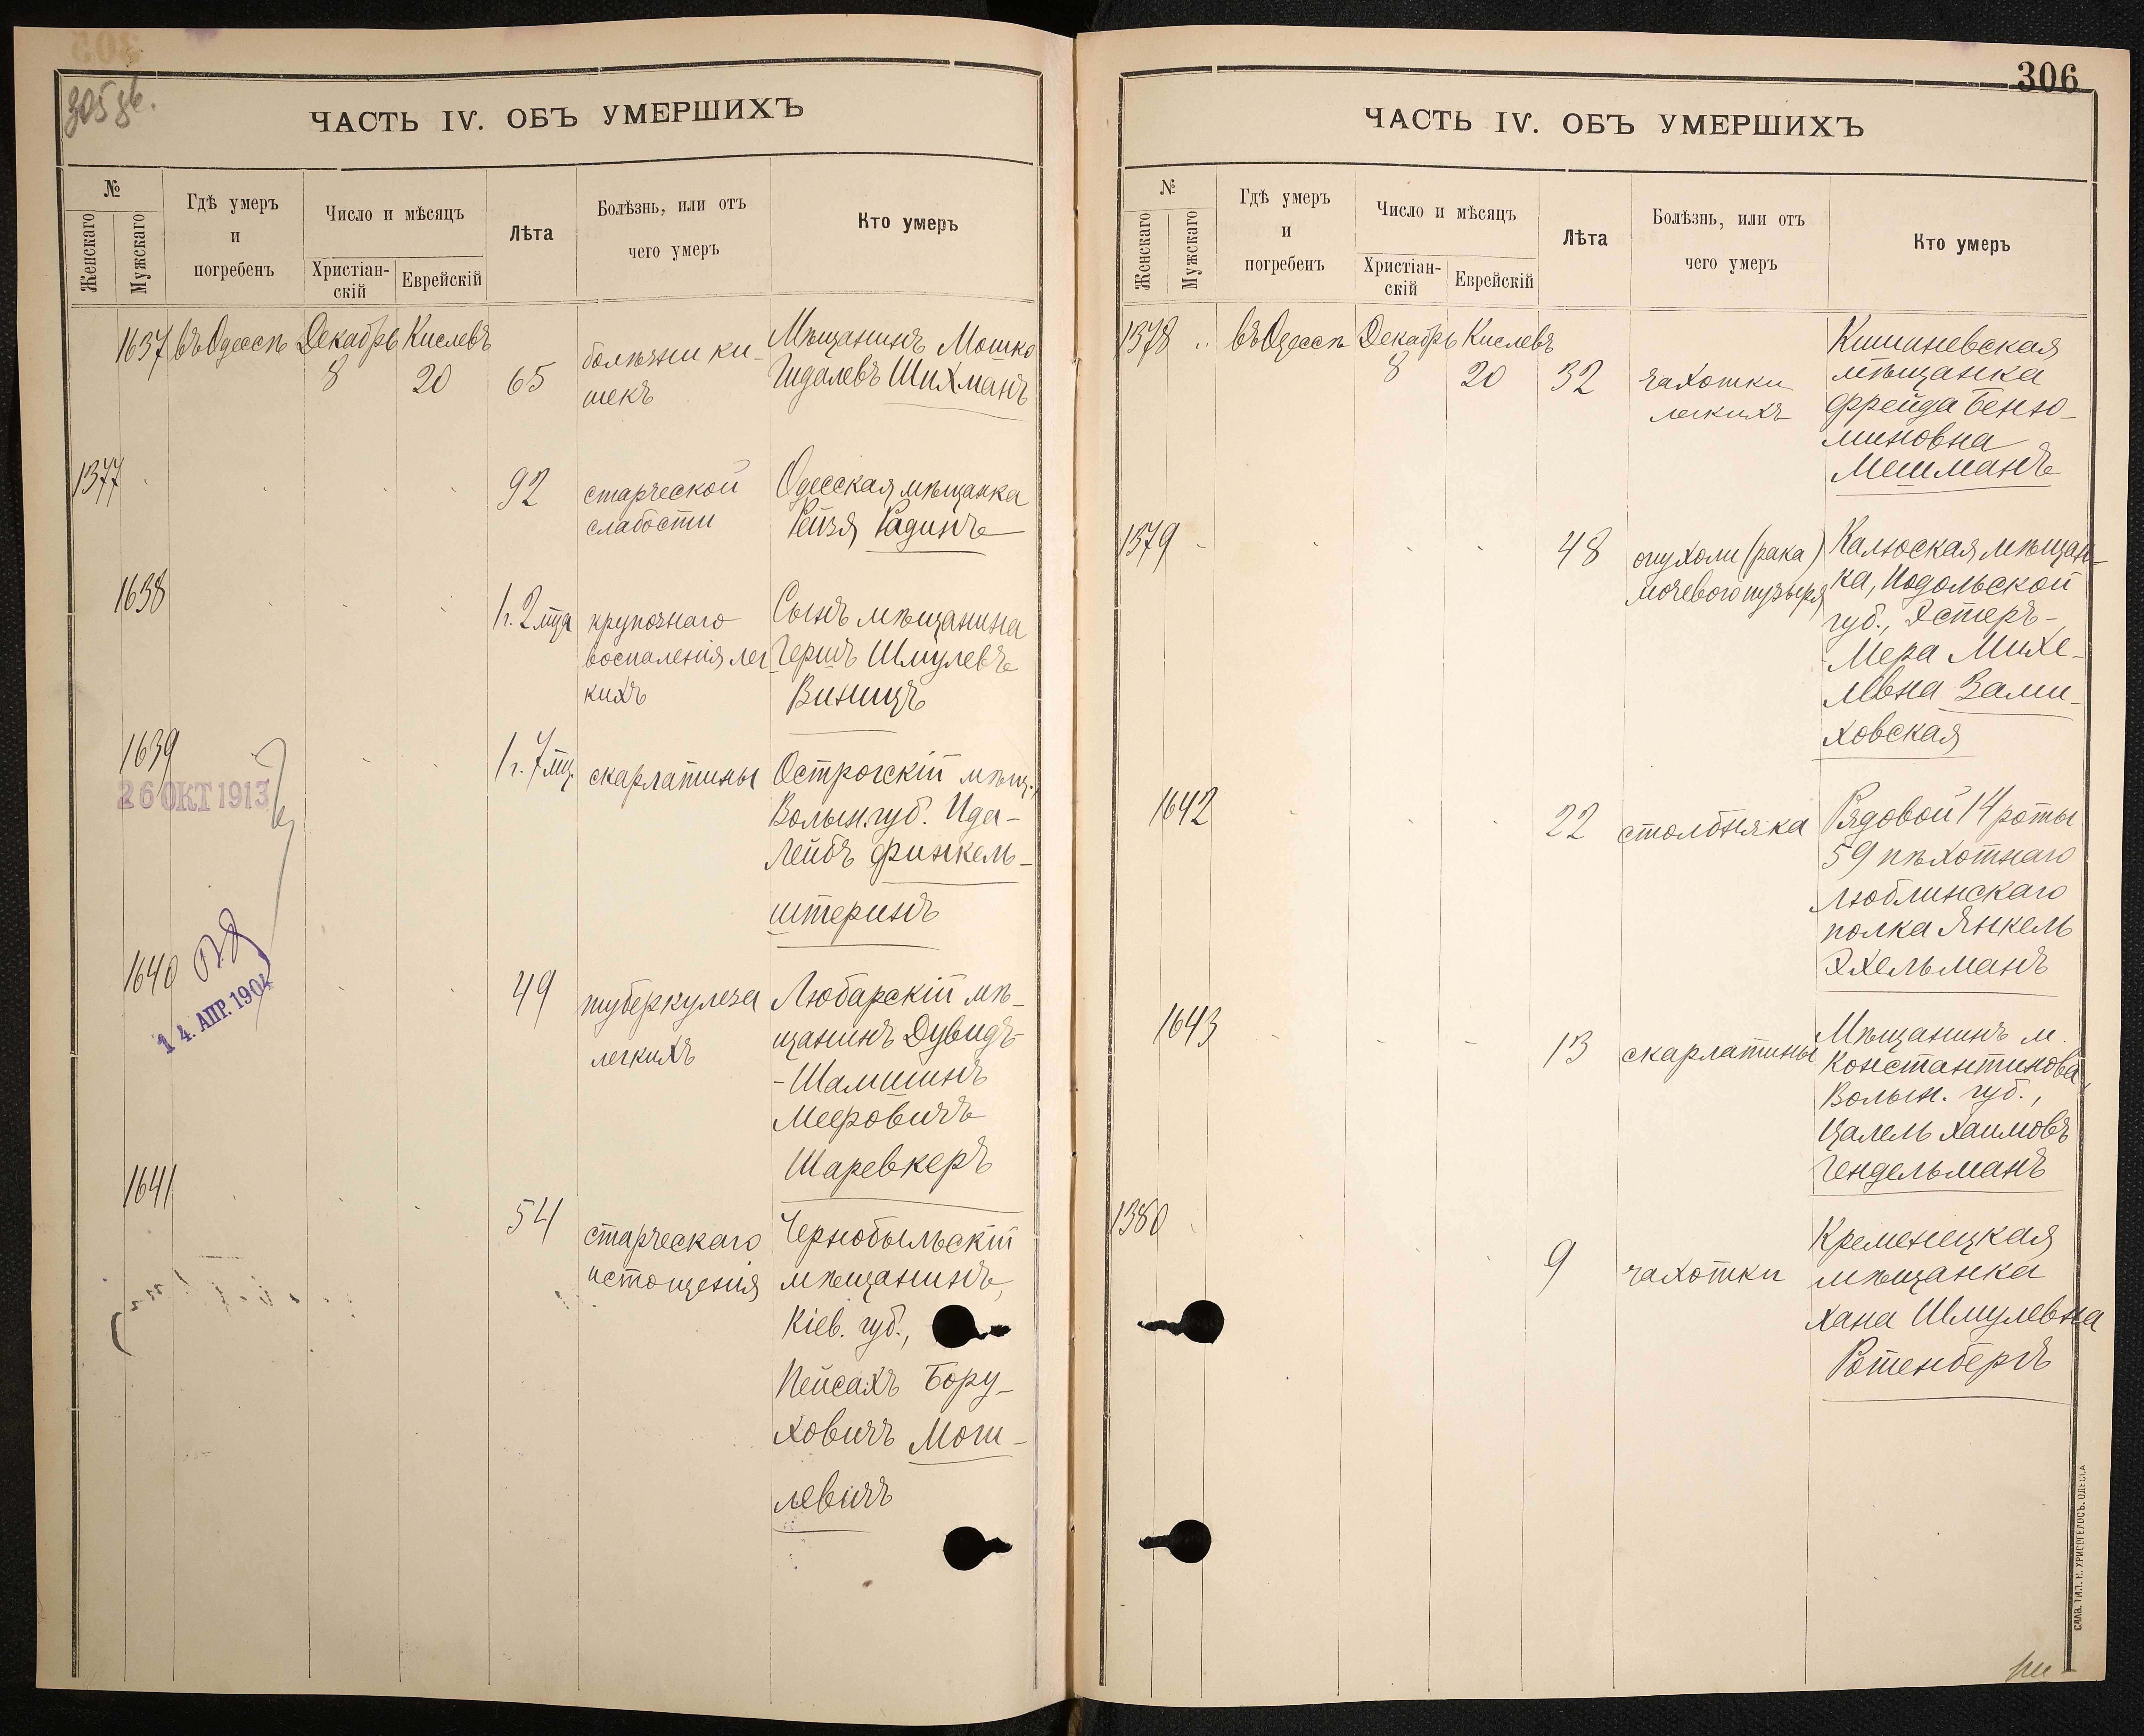 305 зв.
ЧАСТЬ IV. ОБЪ УМЕРШИХЪ
№
Женскаго
Мужскаго
Гдѣ умеръ
и
погребенъ
Число и мѣсяцъ
Христіан-
скій
Еврейскій
Лѣта
Болѣзнь, или отъ
чего умеръ
Кто умеръ
1637 въ Одессѣ Декабрь Кислевъ
8 20 65
болѣзни ки-
шекъ
Мѣщанинъ Мошко
Гидалевъ Шихманъ
1377
92
старческой
слабости
Одесская мѣщанка
Рейзя Радинъ
1638
1 г. 2 мца
крупознаго
воспаленія лег
кихъ
Сынъ мѣщанина
Гершъ Шмулевъ
Виницъ
1639
1 г. 7 мц.
скарлатины
Острогскій мѣщ.,
Волын. губ. Ида-
Лейбъ Финкель-
штеринъ
26 ОКТ 1913
1640
14. АПР. 1904
49
туберкулеза
легкихъ
Любарскій мѣ-
щанинъ Дувидъ-
-Шамшинъ
Мееровичъ
Шаревкеръ
1641
54
старческаго
истощенія
Чернобыльскій
мѣщанинъ,
Кіев. губ.,
Пейсахъ Бору-
ховичъ Моги-
левичъ
306
ЧАСТЬ IV. ОБЪ УМЕРШИХЪ
№
Женскаго
Мужскаго
Гдѣ умеръ
и
погребенъ
Число и мѣсяцъ
Христіан-
скій
Еврейскій
Лѣта
Болѣзнь, или отъ
чего умеръ
Кто умеръ
1378 въ Одессѣ Декабрь Кислевъ
8 20 32
чахотки
легкихъ
Кишиневская
мѣщанка
Фрейда Беню-
миновна
Мешманъ
1379
48
опухоли (рака)
мочевого пузыря
Калюская мѣщан-
ка, Подольской
губ., Эстеръ-
-Мера Михе-
левна Зами-
ховская
1642
22
столбняка
Рядовой 14 роты
59 пѣхотнаго
Люблинскаго
полка Янкель
Эхельманъ
1643
13
скарлатины
Мѣщанинъ м.
Константинова,
Волын. губ.,
Цалель Хаимовъ
Гендельманъ
1380
9
чахотки
Кременецкая
мѣщанка
Хана Шмулевна
Ротенбергъ
СЛАВ. ТИП. Н. ХРИСОГЕЛОСЪ. ОДЕССА